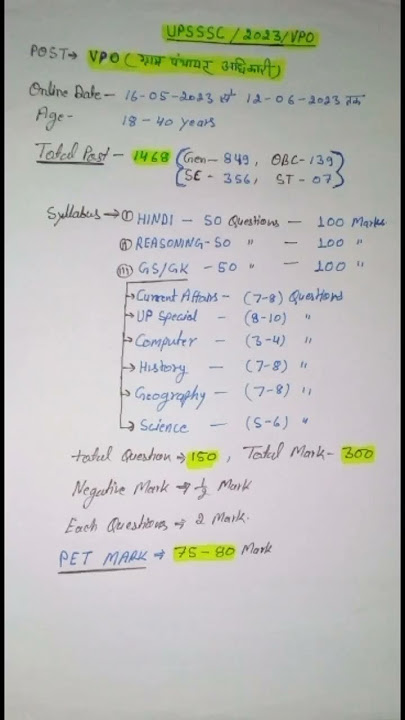 UPSSSC / 2023 / VPO
POST→ VPO ( ग्राम पंचायत अधिकारी)
Online Date - 16-05-2023 से 12-06-2023 तक
Age - 18 - 40 years
Total Post - 1468 {Gen - 849, OBC - 139
SC - 356, ST - 07}
Syllabus → ① HINDI - 50 Questions - 100 Marks
(ii) REASONING - 50 " - 100 "
(iii) GS/GK - 50 " - 100 "
→ Current Affairs - (7-8) Questions
→ UP Special - (8-10) "
→ Computer - (3-4) "
→ History - (7-8) "
→ Geography - (7-8) "
→ Science - (5-6) "
total Question → 150, Total Mark - 300
Negative Mark ⇒ ½ Mark
Each Questions ⇒ 2 Mark.
PET MARK ⇒ 75-80 Mark